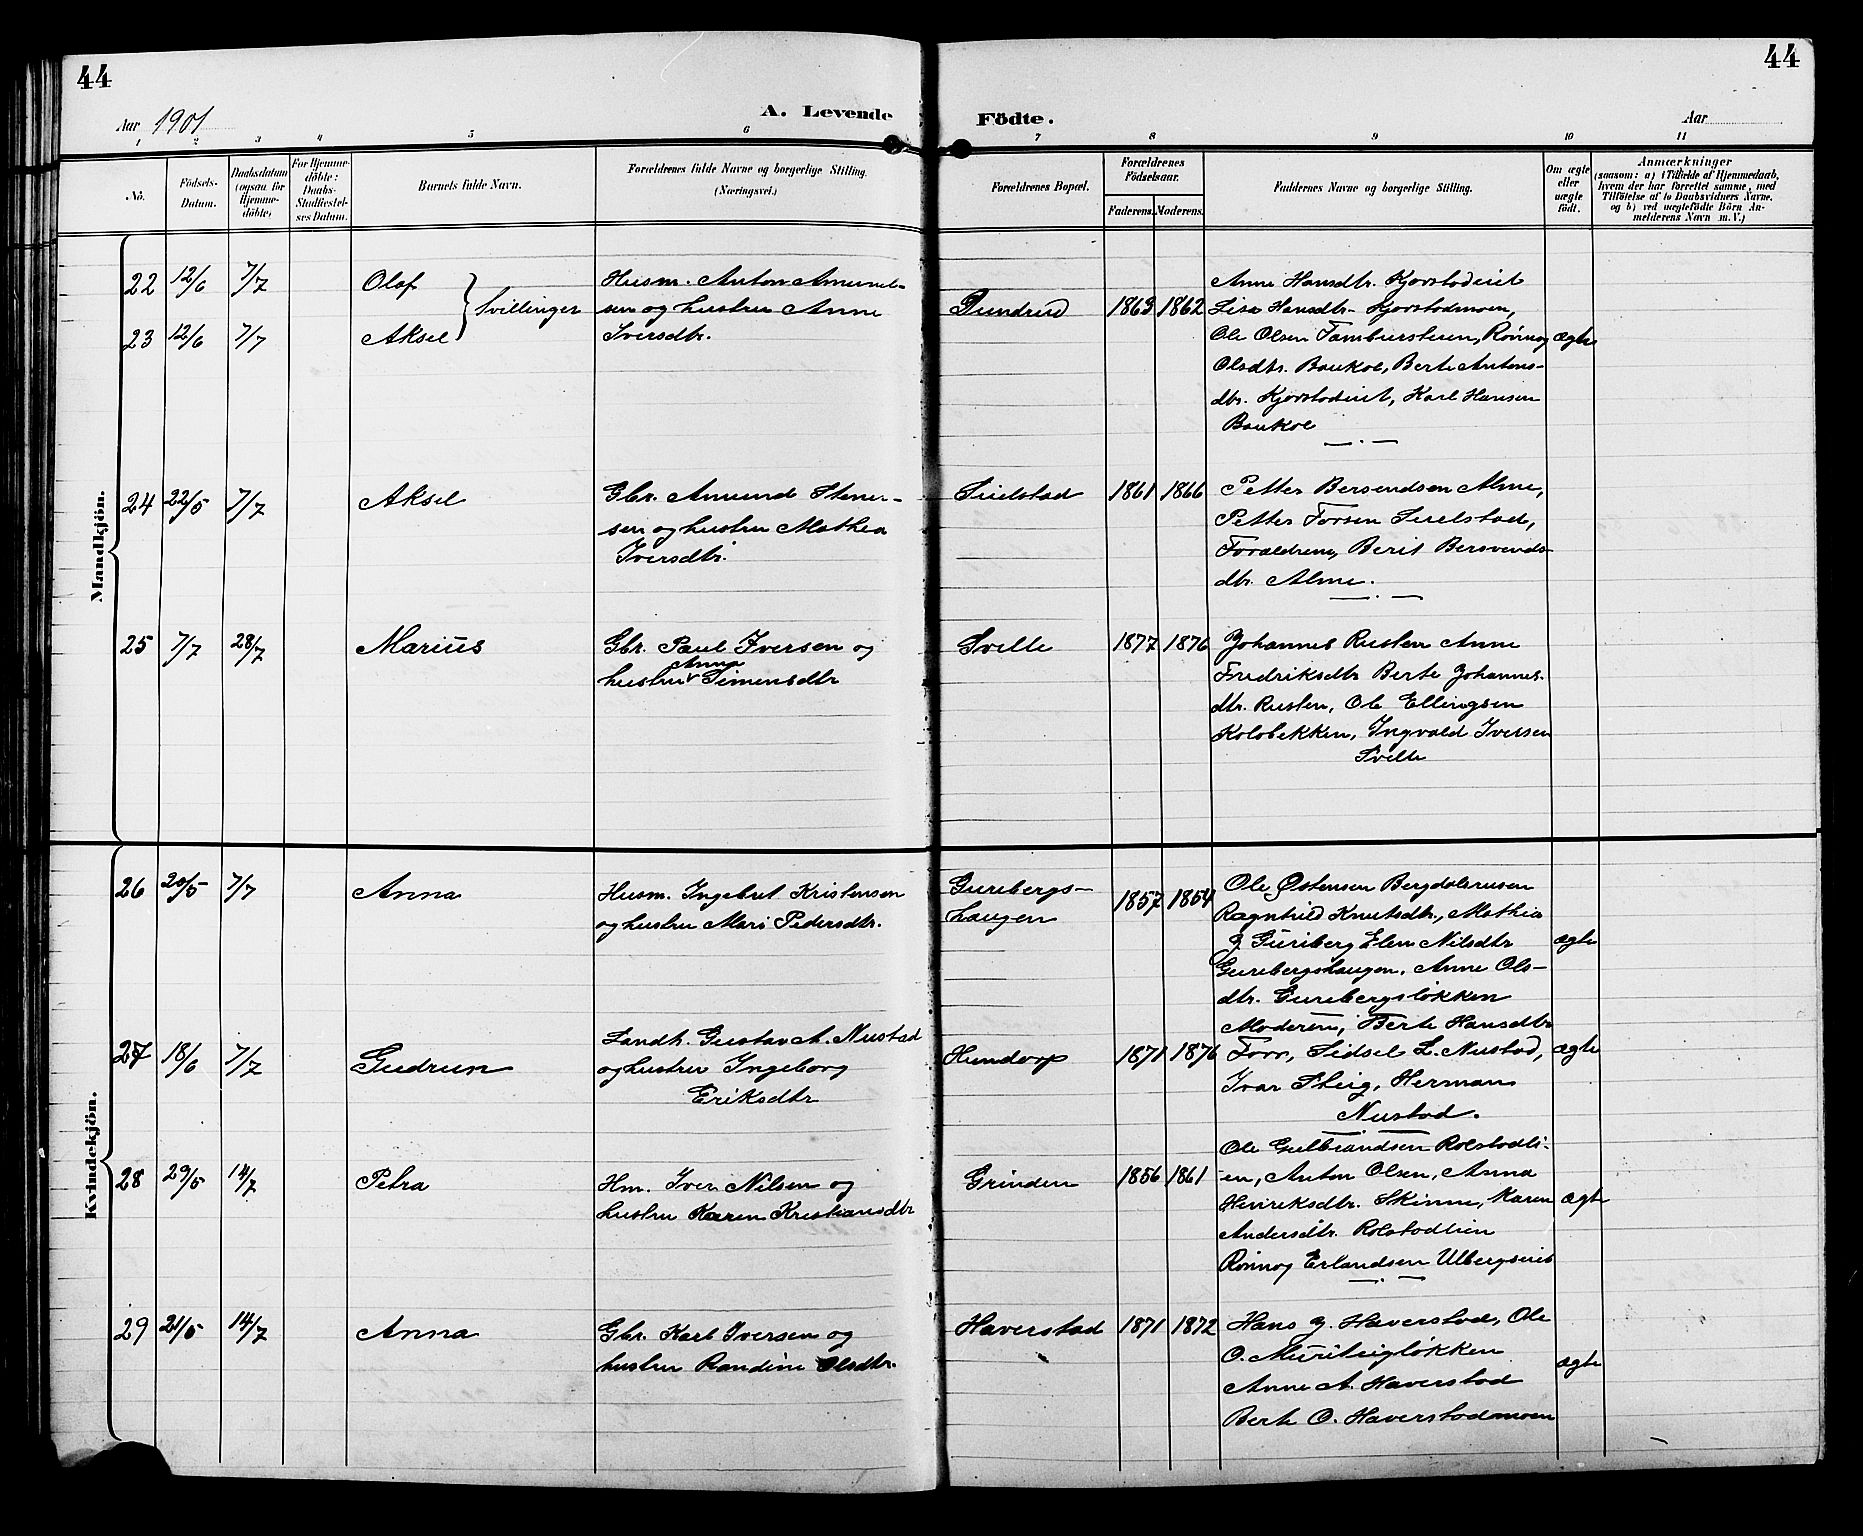 44
44
Aar 1901
A. Levende
Födte.
Aar
1 2 3 4 5 6 7 8 9 10 11
No.
Födsels-
Datum.
Daabsdatum
(ogsaa for
Hjemme-
döbte)
For Hjemme-
döbte:
Daabs-
Stadfæstel-
ses Datum.
Barnets fulde Navn.
Forældrenes fulde Navne og borgerlige Stilling.
(Næringsvei.)
Forældrenes Bopæl.
Forældrenes
Födselsaar.
Faderens.
Moderens.
Faddernes Navne og borgerlige Stilling.
Om ægte
eller
uægte
født.
Anmærkninger
(saasom: a) i Tilfælde af Hjemmedaab,
hvem der har forrettet samme, med
Tilföielse af to Daabsvidners Navne.
og b) ved uægtefödte Börn An-
melderens Navn m. V.)
Mandkjön.
22 12/6 7/7 Olaf
23 12/6 7/7 Aksel
Tvillinger
Husm. Anton Amund-
sen og hustru Anne
Iversdtr.
Sundrud 1863 1862
Anne Hansdtr. Kjorstadeiet
Lisa Hansdtr. Kjorstadmoen,
Ole Olsen Tambursteien, Rønnog
Olsdtr. Baukol, Berte Antons-
dtr. Kjorstadeiet, Karl Hansen
Baukol
ægte
24 22/5 7/7 Aksel
Gbr. Amund Stener-
sen og hustru Mathea
Iversdtr.
Sulstad 1861 1866
Petter Bersvendsen Alme,
Petter Torsen Sulstad,
Forældrene, Berit Bersvends-
dtr. Alme.
25 7/7 28/7 Marius
Gbr. Paul Iversen og
hustru Anne Simensdtr
Tvette 1877 1876
Johannes Rusten Anne
Fredriksdtr Berte Johannes-
dtr. Rusten, Ole Ellingsen
Kolobekken, Ingvald Iversen
Tvette
Kvindekjön.
26 20/5 7/7 Anna
Husm. Ingebret Kristensen
og hustru Mari Pedersdtr.
Gurebergs-
haugen
1857 1854
Ole Østensen Bergdølsrusen
Ragnhild Knutsdtr., Mathia
J Guriberg Elen Nilsdtr
Gurebergshaugen, Anne Ols-
dtr. Gurebergsløkken
ægte
27 18/6 7/7 Gudrun
Landh. Gustav A. Nustad
og hustru Ingeborg
Eriksdtr
Hundorp 1871 1876
Moderen, Berte Hansdtr
Forr, Sidsel L. Nustad,
Ivar Steig, Herman
Nustad.
ægte
28 29/5 14/7 Petra
Hm. Iver Nilsen og
hustru Karen Kristiansdtr
Grinden 1856 1861
Ole Gulbrandsen Rolstadli-
en, Anton Olsen, Anna
Henriksdtr. Skinne, Karen
Andersdtr. Rolstadlien
Rønnog Erlandsen Ulbergseie
ægte
29 21/5 14/7 Anna
Gbr. Karl Iversen og
hustru Randine Olsdtr.
Haverstad 1871 1872
Hans J. Haverstad, Ole
O. Muristigløkken
Anne A. Haverstad
Berte O. Haverstadmoen
ægte